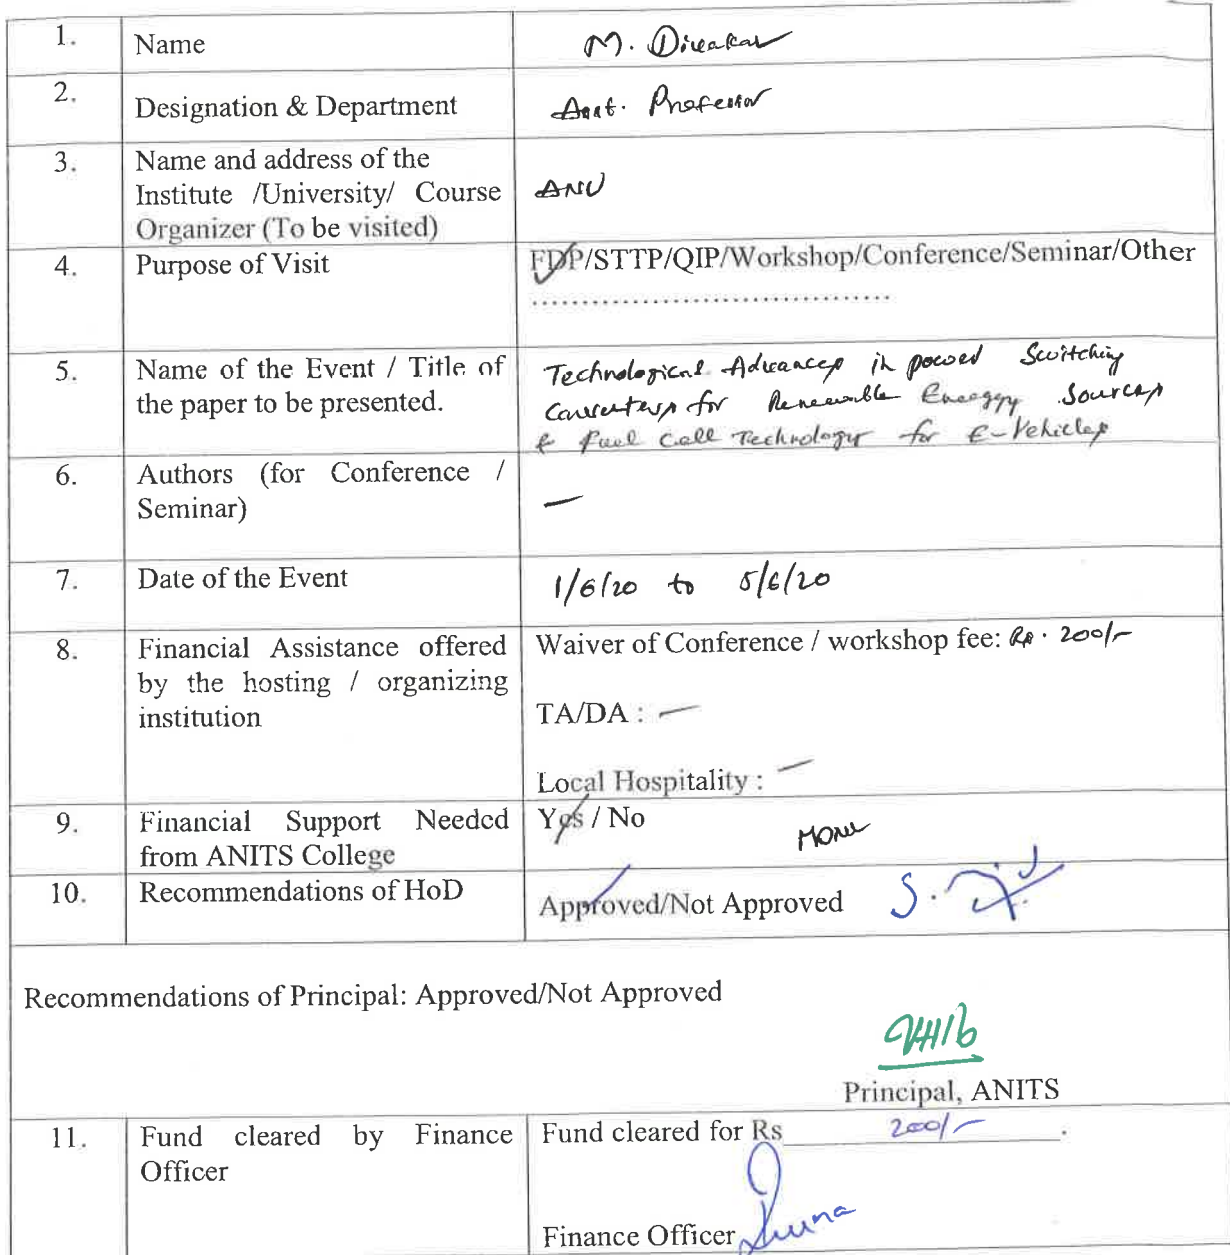 1. Name M. Divakar
2. Designation & Department Asst. Professor
3. Name and address of the
Institute /University/ Course ANU
Organizer (To be visited)
4. Purpose of Visit FDP/STTP/QIP/Workshop/Conference/Seminar/Other
.....................................
5. Name of the Event / Title of Technological Advances in power Switching
the paper to be presented. Converters for Renewable Energy Sources
& Fuel Cell Technology for E-Vehicles
6. Authors (for Conference /
Seminar) —
7. Date of the Event 1/6/20 to 5/6/20
8. Financial Assistance offered Waiver of Conference / workshop fee: Rs. 200/-
by the hosting / organizing
institution TA/DA : —
Local Hospitality : —
9. Financial Support Needed Yes / No
from ANITS College
10. Recommendations of HoD Approved/Not Approved
Recommendations of Principal: Approved/Not Approved
Principal, ANITS
11. Fund cleared by Finance Fund cleared for Rs 200/- .
Officer
Finance Officer